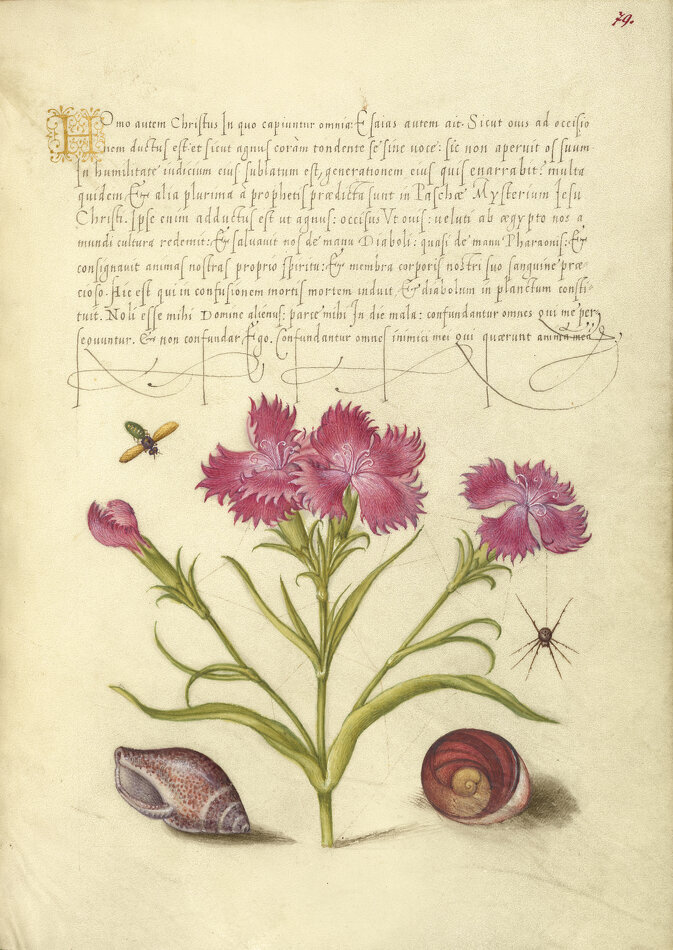 79.
Homo autem Christus In quo capiuntur omnia: Esaias autem ait. Sicut ouis ad occisio
nem ductus est: et sicut agnus coràm tondente se sine uoce: sic non aperuit os suum.
In humilitate iudicium eius sublatum est, generationem eius quis enarrabit: multa
quidem, Et alia plurima à prophetis prædicta sunt in Paschæ Mysterium Jesu
Christi. Ipse enim adductus est ut agnus: occisus Vt ouis: ueluti ab ægypto nos a
mundi cultura redemit: Et saluauit nos de manu Diaboli: quasi de manu Pharaonis: Et
consignauit animas nostras proprio spiritu: Et membra corporis nostri suo sanguine præ-
cioso. Hic est qui in confusionem mortis mortem induit, Et diabolum in planctum consti-
tuit. Noli esse mihi Domine alienus: parce mihi In die mala: confundantur omnes qui me per-
sequuntur. Et non confundar, Ego. Confundantur omnes inimici mei qui quærunt animā meā